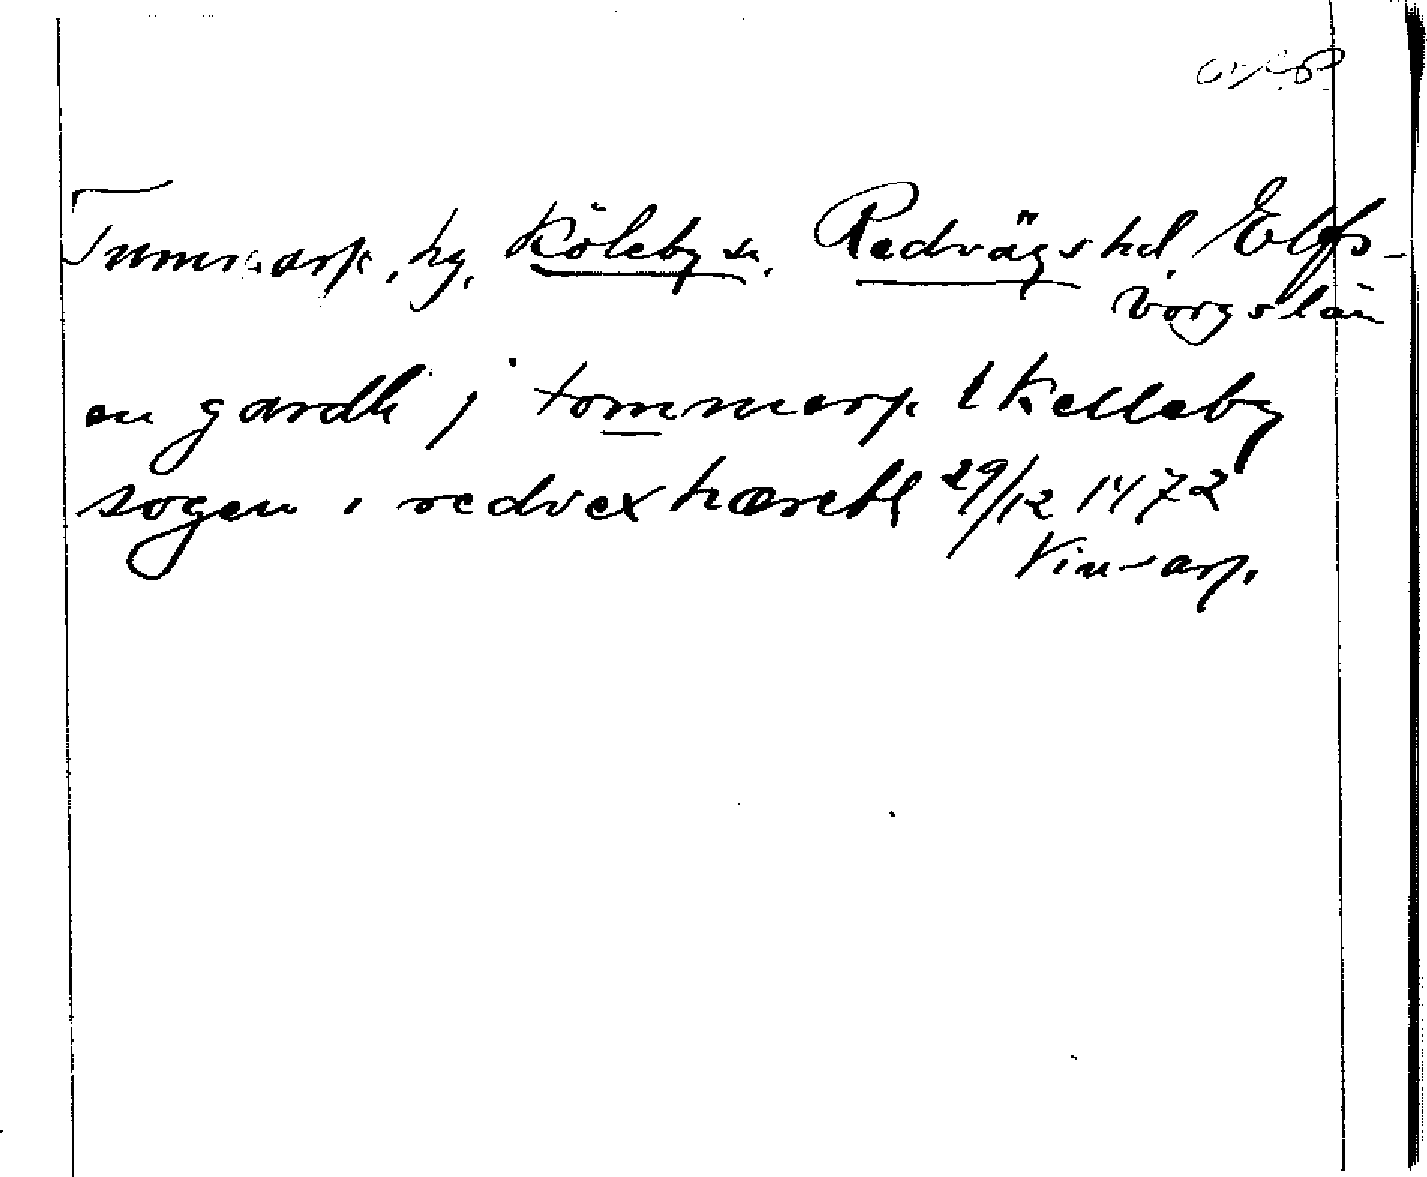 Tummarp, hg, Köleby sn. Redvägs hd, Elfs-
borgs län
en gardh j tommarp i Kelleby
sogen i redvex hæreth 29/12 1472
Vinsarp.